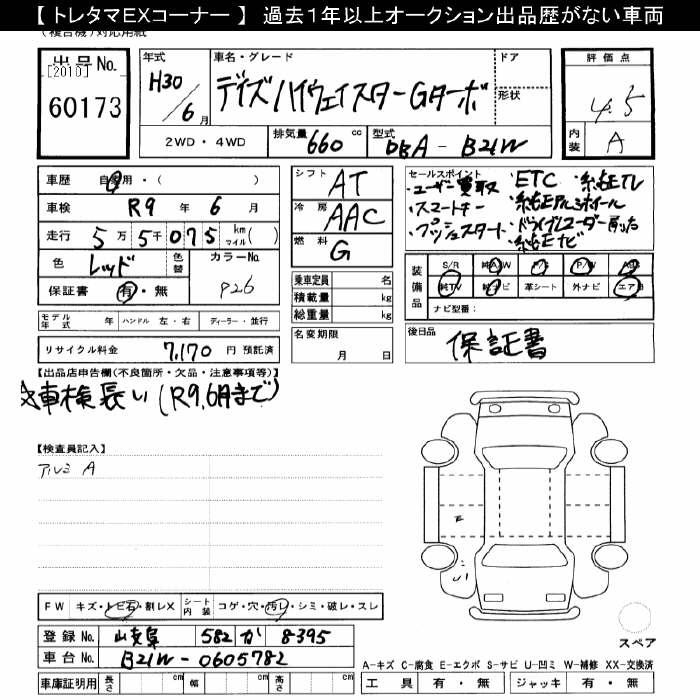 【トレタマEXコーナー】 過去1年以上オークション出品歴がない車両
(複合機)対応用紙
出品No.
[2010]
60173
年式
H30/6月
車名・グレード
デイズ ハイウェイスターGターボ
ドア
形状
2WD・4WD
排気量 660 cc
型式 DBA - B21W
評価点
4.5
内装 A
車歴 自家用・( )
車検 R9年 6月
走行 5万 5千 075 km マイル( )
色 レッド 色替
カラーNo. A26
保証書 有・無
シフト AT
冷房 AAC
燃料 G
セールスポイント
・ユーザー買取 ・ETC ・純正TV
・スマートキー ・純正アルミホイール
・プッシュスタート ・ドライブレコーダー
・純正ナビ
乗車定員 名
積載量 kg
総重量 kg
装備品
S/R 純A/W P/S P/W ABS
純TV 純ナビ 革シート 外ナビ エアB
ナビ型番:
モデル年式 年 ハンドル 左・右 ディーラー・並行
リサイクル料金 7,170 円 預託済
名変期限
月 日
後日品
保証書
【出品店申告欄(不良箇所・欠品・注意事項等)】
車検長い(R9,6月まで)
【検査員記入】
アルミ A
E
U1
FW キズ・トビ石・割レX
シート内装 コゲ・穴・汚レ・シミ・破レ・スレ
登録No. 582 か 8395
車台No. B21W-0605782
車庫証明用 長さ cm 幅 cm 高さ cm
スペア
A-キズ C-腐食 E-エクボ S-サビ U-凹ミ W-補修 XX-交換済
工具 有・無 ジャッキ 有・無